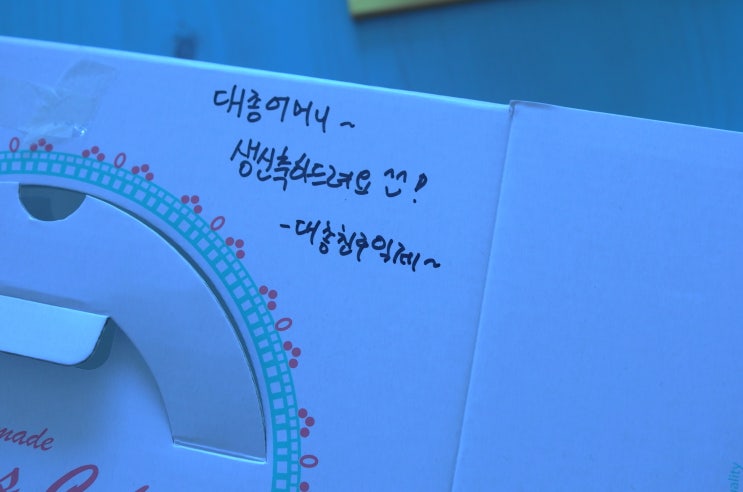 대총어머니~
생신축하드려요 ^^!
-대총친구익제~
made
ality